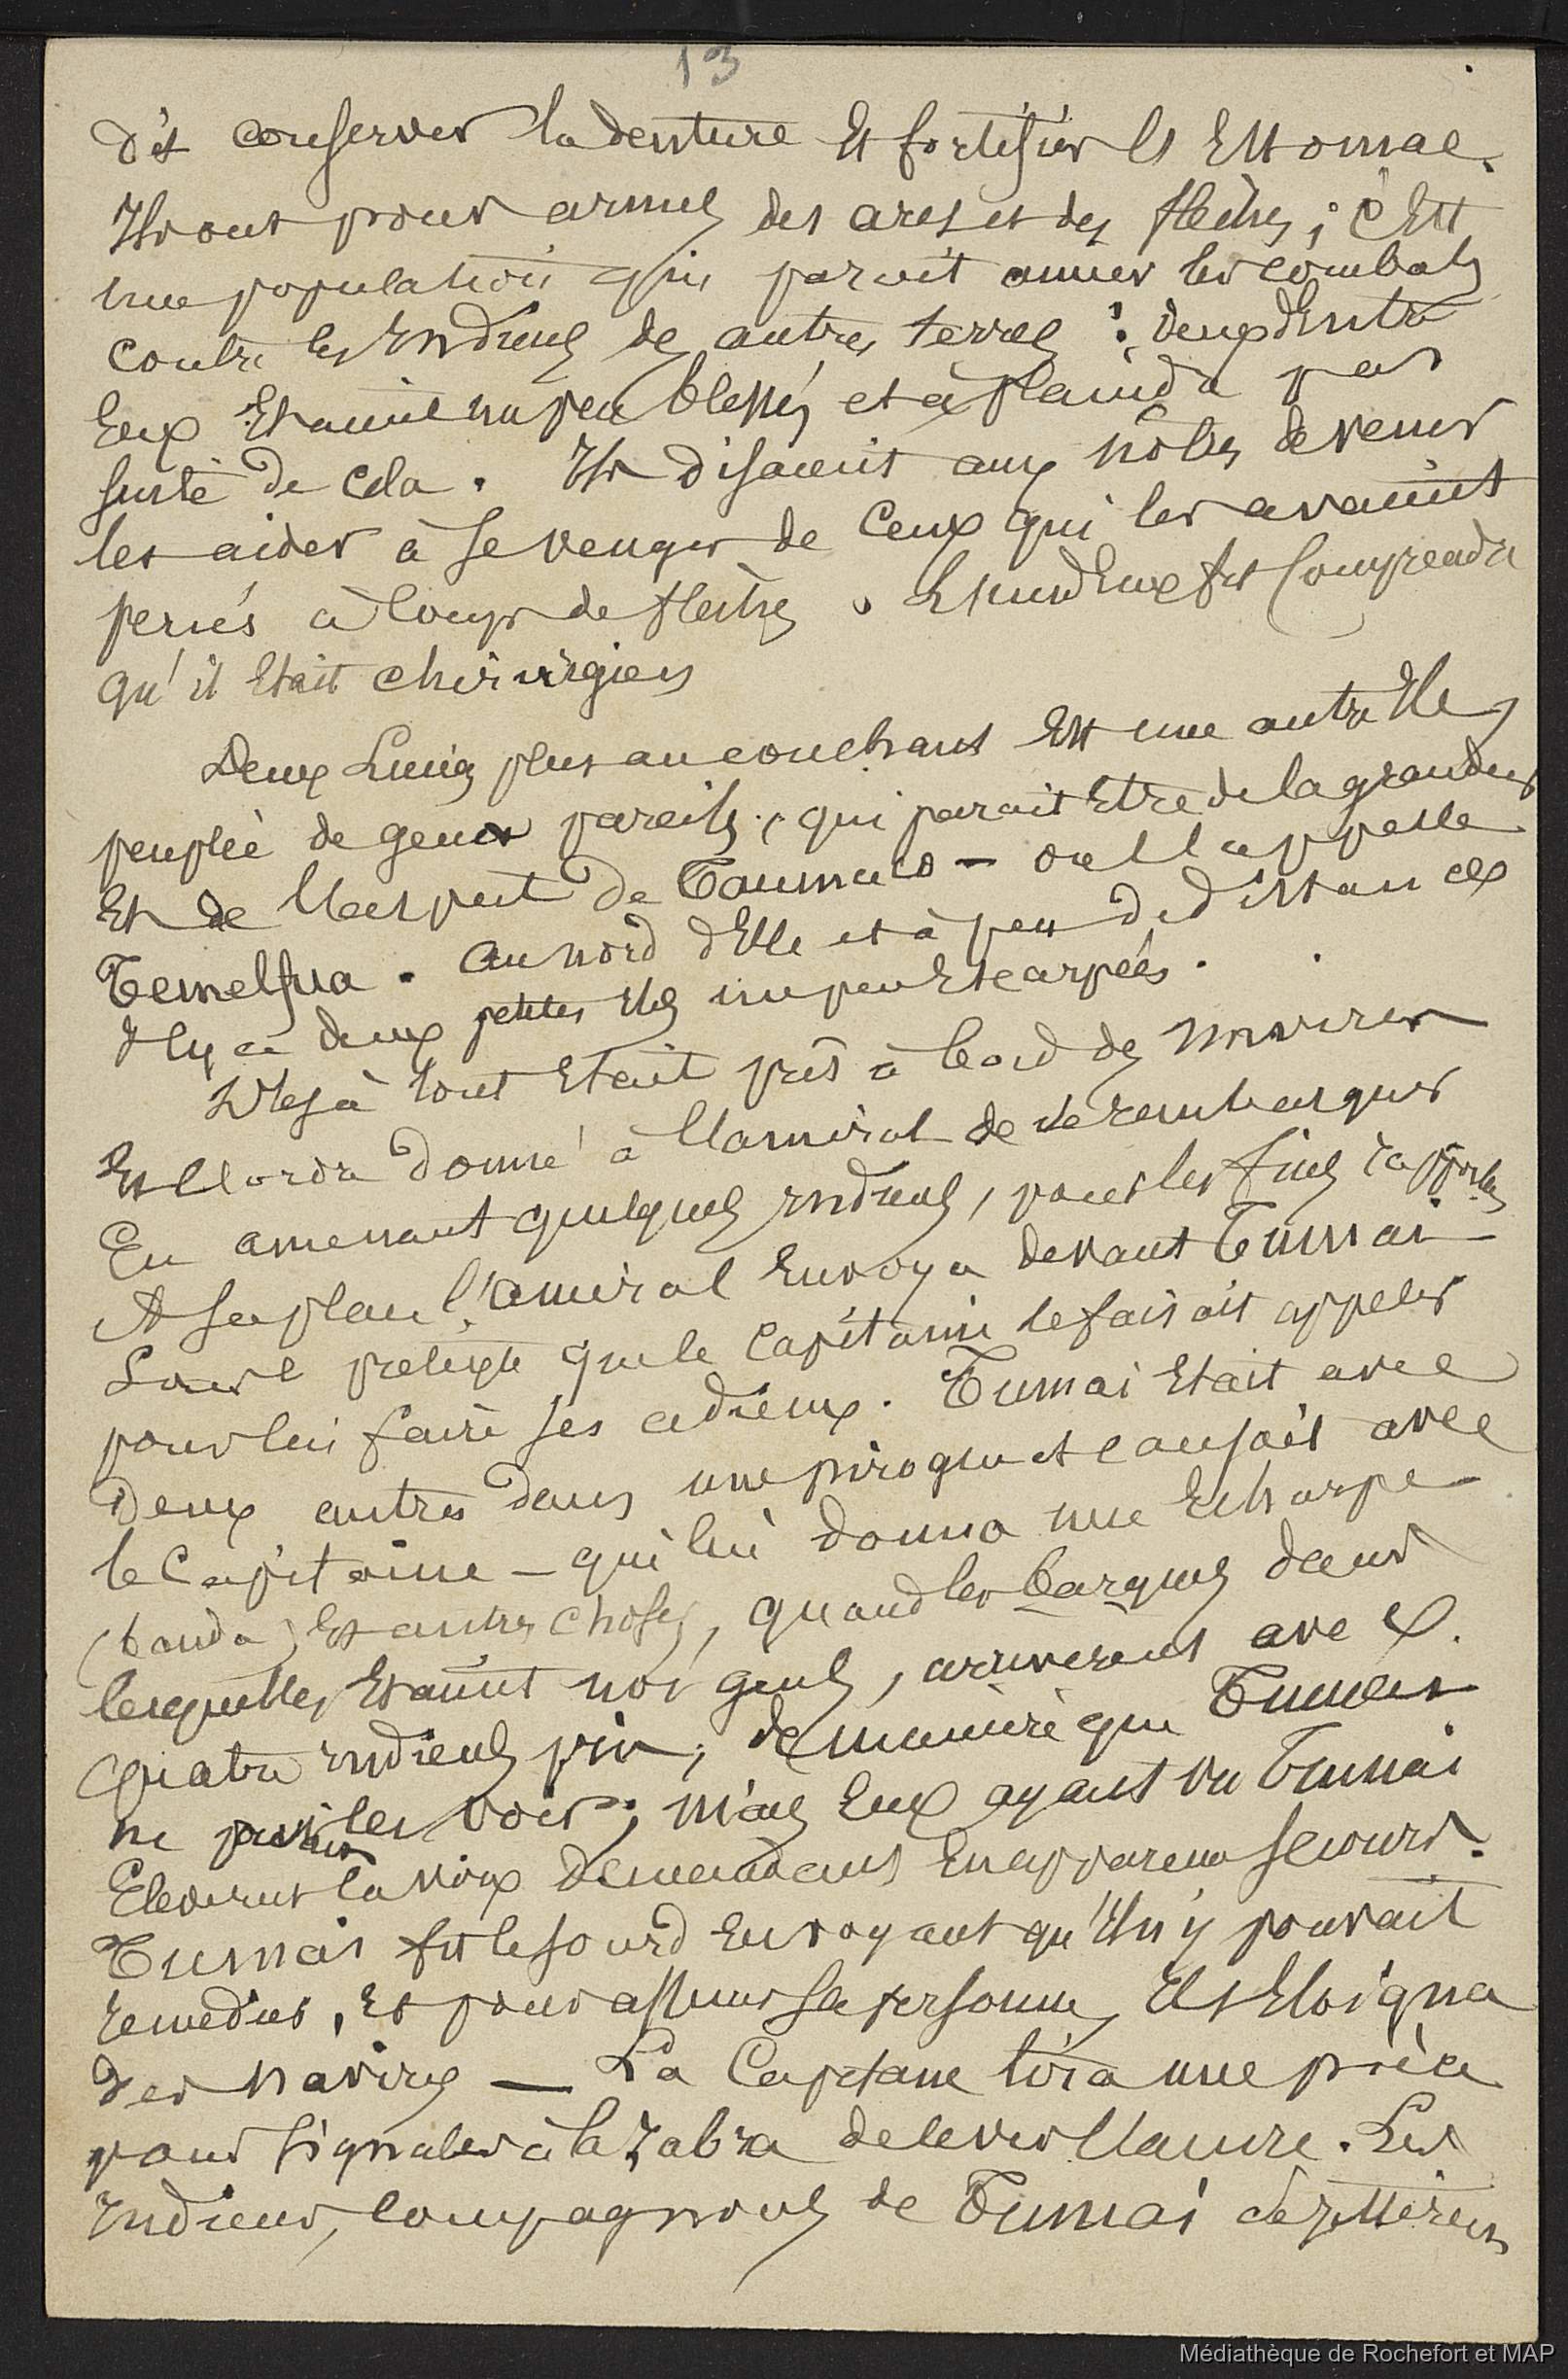 13
dit conserver la denture Et fortifier l'Estomac.
Ils ont pour armes des arcs et des flèches ; c'Est
une population qui parait aimer les combats
contre les Indiens des autres terres : deux d'Entre
Eux Etaient un peu blessés et à plaindre par
suite de cela. Ils disaient aux nôtres de venir
les aider à se venger de Ceux qui les avaient
percés à Coups de flèches. L'un d'Eux fit Comprendre
qu'il Etait chirurgien
Deux Lieues plus au couchant Est une autre Ile,
peuplée de gens pareils, qui parait Etre de la grandeur
Et de l'aspect de Taumaco — on l'appelle
Temelfua. Au nord d'Elle et à peu de distance
Il y a deux petites Iles un peu Escarpées.
Déjà tout Etait prêt à bord des navires
Et l'ordre donné à l'amiral de se rembarquer
En amenant quelques Indiens, pour les fins rapportées
A sa place l'amiral Envoya devant Tumai
Sous prétexte que le Capitaine le faisait appeler
pour lui faire ses adieux. Tumai Etait avec
deux autres dans une pirogue et causait avec
le Capitaine — qui lui donna une Echarpe
(banda) Et autres choses, quand les barques dans
lesquelles Etaient nos gens, arrivèrent avec
quatre Indiens pris, de manière que Tumai
ne put les voir ; mais Eux ayant vu Tumai
Elevèrent la voix demandant En apparence secours.
Tumai fit le sourd En voyant qu'Il n'y pouvait
remedier, Et pour assurer sa personne, Il s'Eloigna
des navires — La Capitane tira une pièce
pour signaler à la Zabra de lever l'ancre. Les
Indiens, compagnons de Tumai